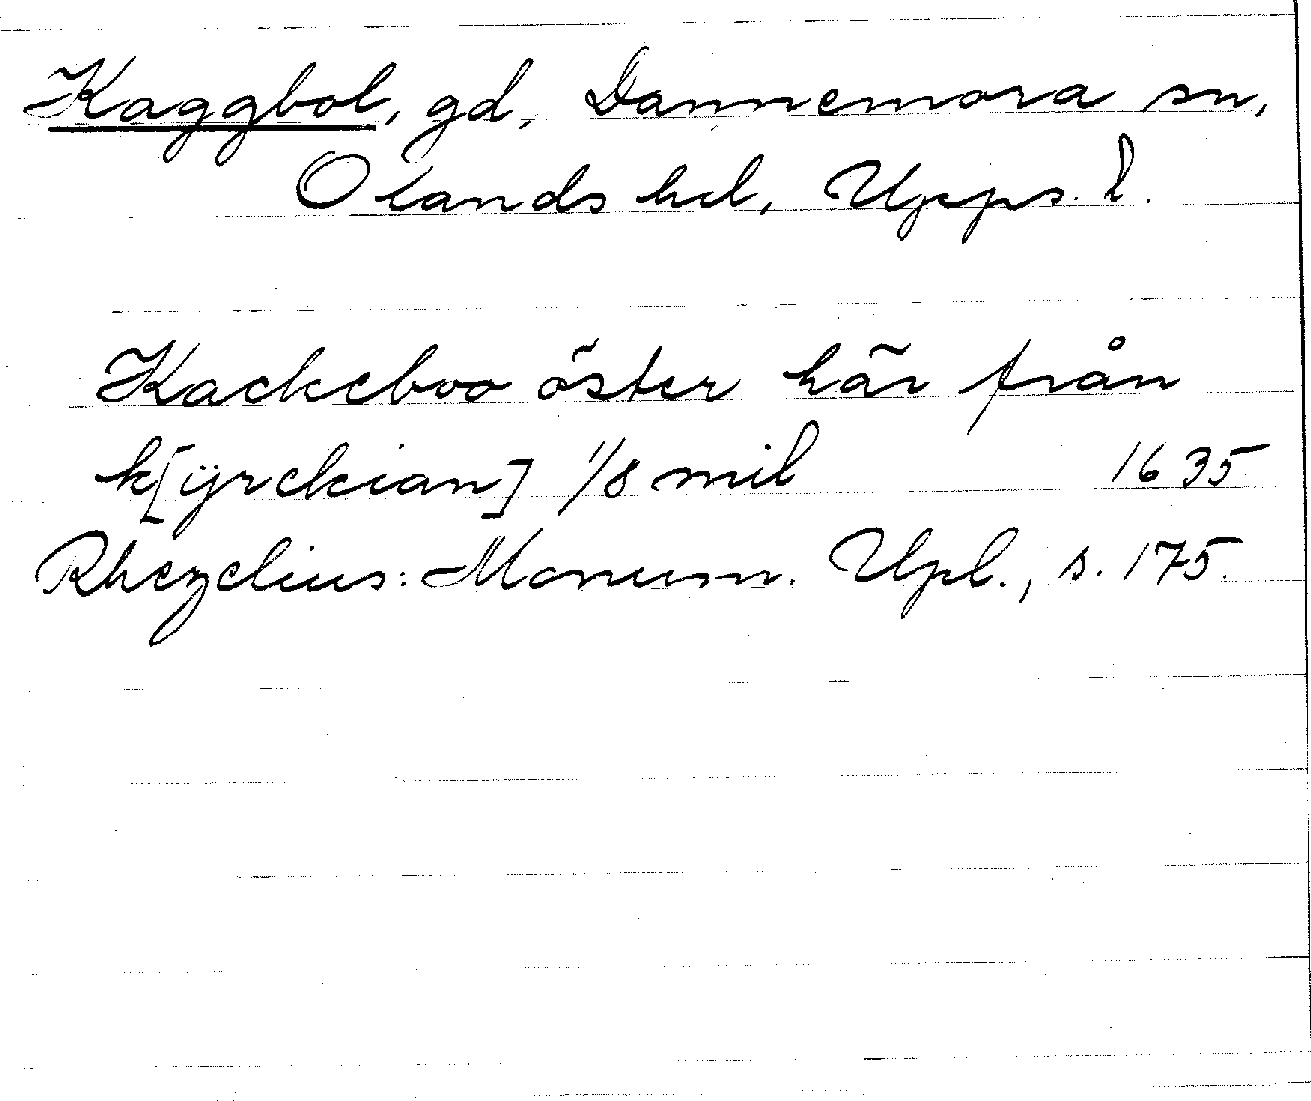 Kaggbol, gd, Dannemora sn,
Olands hd, Upps. l.
Kackeboo öster här från
k[ÿrckian] 1/8 mil 1635
Rhezelius: Monum. Upl., s. 175.